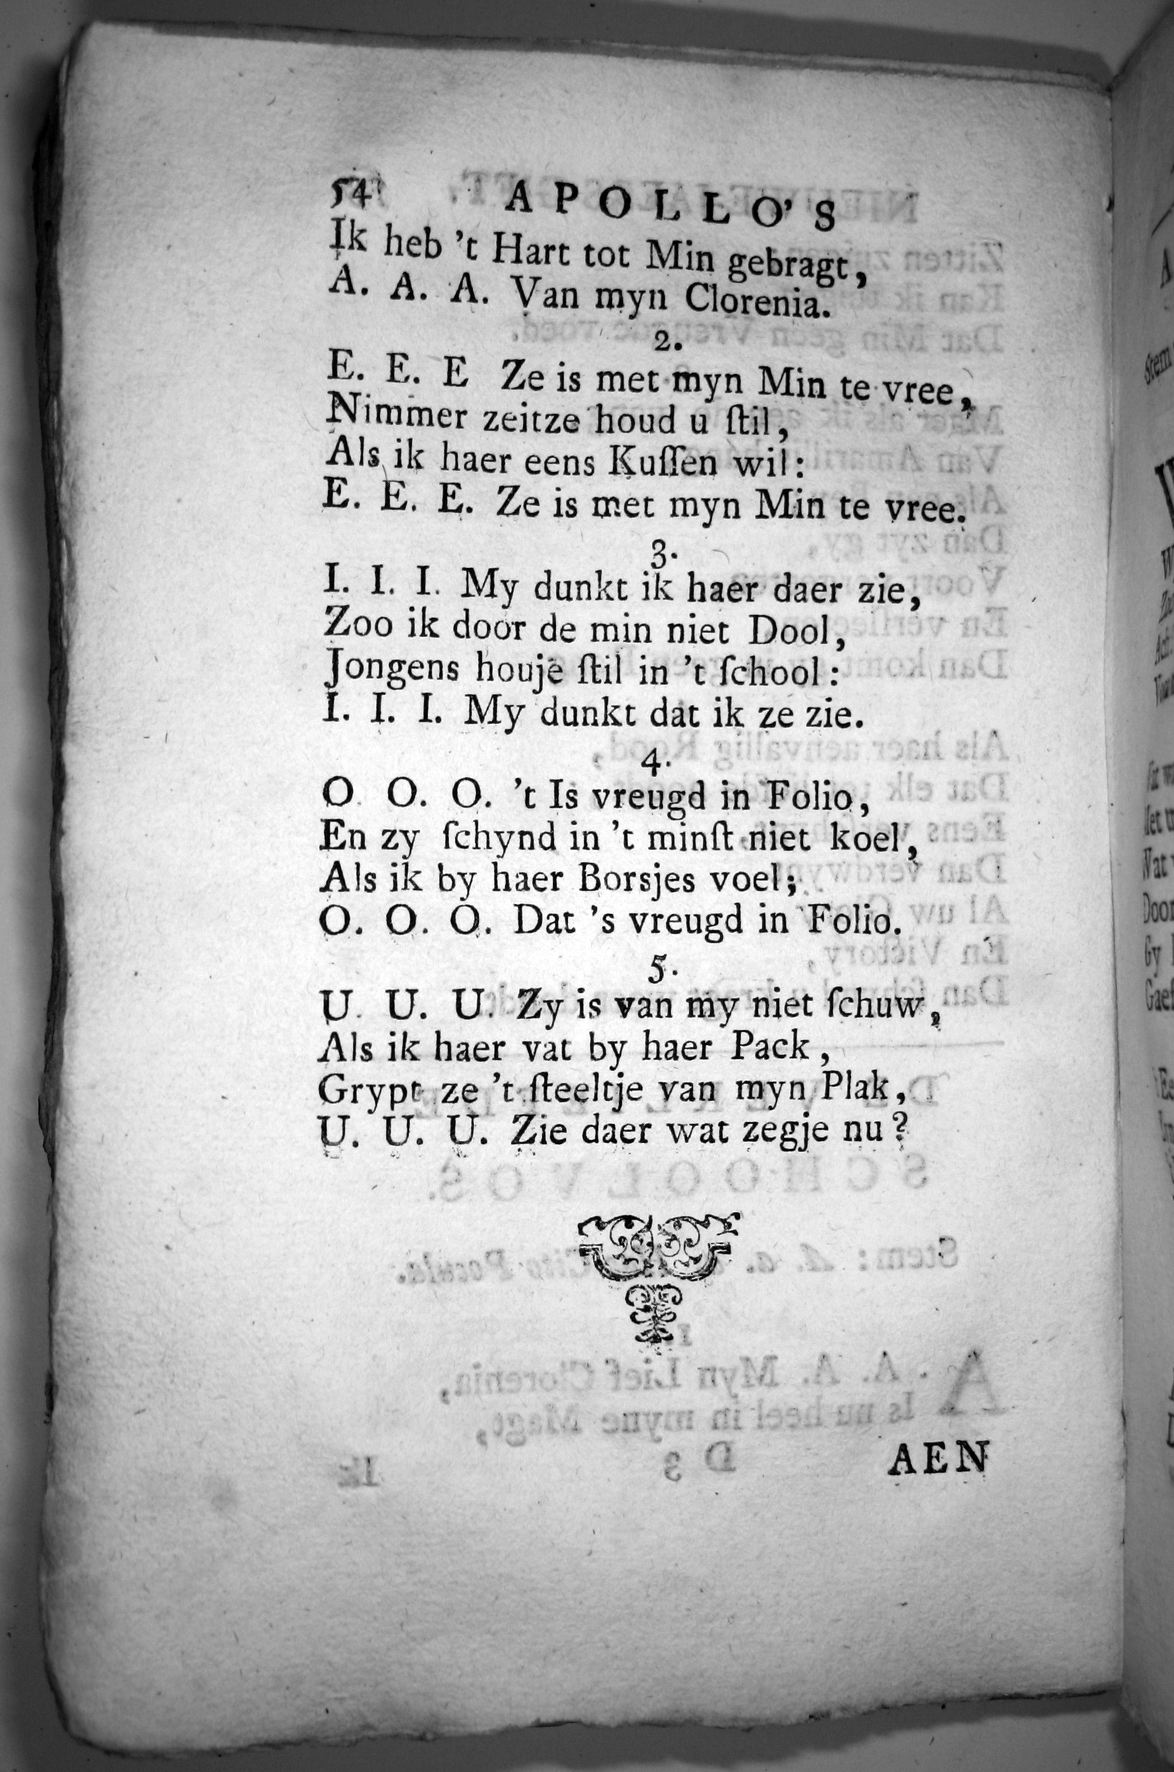 54 APOLLO'S
Ik heb 't Hart tot Min gebragt,
A. A. A. Van myn Clorenia.
2.
E. E. E Ze is met myn Min te vree,
Nimmer zeitze houd u ſtil,
Als ik haer eens Kuſſen wil:
E. E. E. Ze is met myn Min te vree.
3.
I. I. I. My dunkt ik haer daer zie,
Zoo ik door de min niet Dool,
Jongens houje ſtil in 't ſchool:
I. I. I. My dunkt dat ik ze zie.
4.
O O. O. 't Is vreugd in Folio,
En zy ſchynd in 't minſt niet koel,
Als ik by haer Borsjes voel;
O. O. O. Dat 's vreugd in Folio.
5.
U. U. U. Zy is van my niet ſchuw,
Als ik haer vat by haer Pack,
Grypt ze 't ſteeltje van myn Plak,
U. U. U. Zie daer wat zegje nu?
AEN